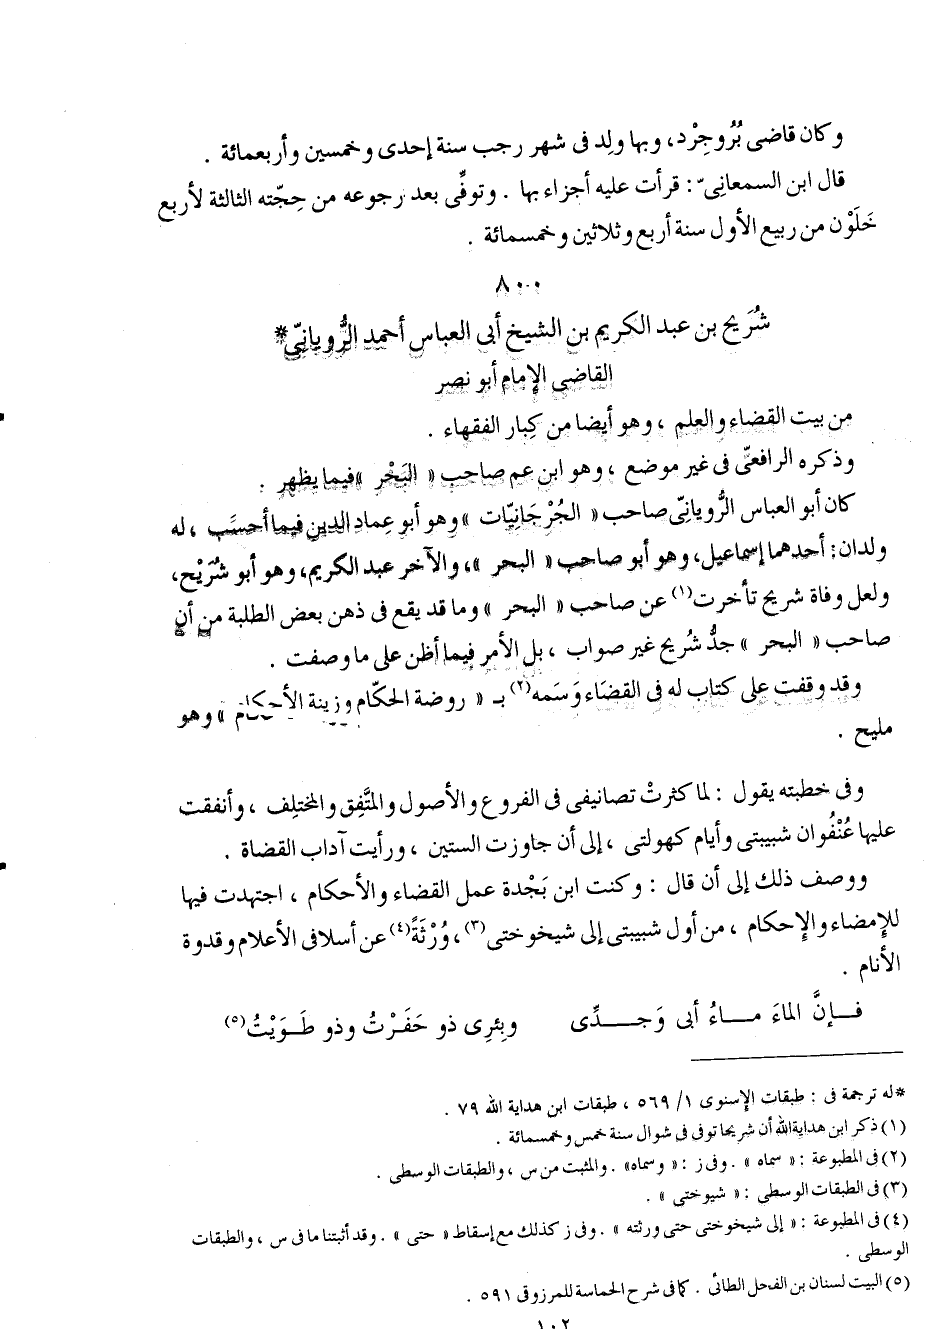 وكان قاضى بُرُوجِرْد، وبها ولِد فى شهر رجب سنة إحدى وخمسين وأربعمائة .
قال ابن السمعانِىّ : قرأت عليه أجزاء بها . وتوفِّى بعد رجوعه من حِجّته الثالثة لأربع
خَلَوْن من ربيع الأول سنة أربع وثلاثين وخمسمائة .
٨٠٠
شُرَيح بن عبد الكريم بن الشيخ أبى العباس أحمد الرُّويانِىّ*
القاضى الإمام أبو نصر
من بيت القضاء والعلم ، وهو أيضا من كِبار الفقهاء .
وذكره الرافعىّ فى غير موضع ، وهو ابن عم صاحب « البَحْر » فيما يظهر .
كان أبو العباس الرُّويانِىّ صاحب « الجُرْجَانِيّات » وهو أبو عماد الدين فيما أحسَب ، له
ولدان : أحدهما إسماعيل، وهو أبو صاحب « البحر »، والآخر عبد الكريم، وهو أبو شُرَيْح،
ولعل وفاة شريح تأخرت(١) عن صاحب « البحر » وما قد يقع فى ذهن بعض الطلبة من أن
صاحب « البحر » جدُّ شُريح غير صواب ، بل الأمر فيما أظن على ما وصفت .
وقد وقفت على كتاب له فى القضَاء وَسَمه(٢) بـ « روضة الحكّام وزينة الأحكام » وهو
مليح .
وفى خطبته يقول : لما كثرتْ تصانيفى فى الفروع والأصول والمتَّفِق والمختلِف ، وأنفقت
عليها عُنْفُوان شبيبتى وأيام كهولتى ، إلى أن جاوزت الستين ، ورأيت آداب القضاة .
ووصف ذلك إلى أن قال : وكنت ابن بَجْدة عمل القضاء والأحكام ، اجتهدت فيها
للإمضاء والإحكام ، من أول شبيبتى إلى شيخوختى(٣)، وُرْثَةً(٤) عن أسلافى الأعلام وقدوة
الأنام .
فـإنَّ الماءَ مـاءُ أبى وَجـدِّى وبِئرِى ذو حَفَرْتُ وذو طَـوَيْتُ(٥)
*له ترجمة فى : طبقات الإسنوى ١/ ٥٦٩ ، طبقات ابن هداية الله ٧٩ .
(١) ذكر ابن هداية الله أن شريحا توفى فى شوال سنة خمس وخمسمائة .
(٢) فى المطبوعة : « سماه » . وفى ز : « وسماه» . والمثبت من س ، والطبقات الوسطى .
(٣) فى الطبقات الوسطى : « شيوختى » .
(٤) فى المطبوعة : « إلى شيخوختى حتى ورثته » . وفى ز كذلك مع إسقاط « حتى » . وقد أثبتنا ما فى س ، والطبقات
الوسطى .
(٥) البيت لسنان بن الفحل الطائى . كما فى شرح الحماسة للمرزوقى ٥٩١ .
١٠٢